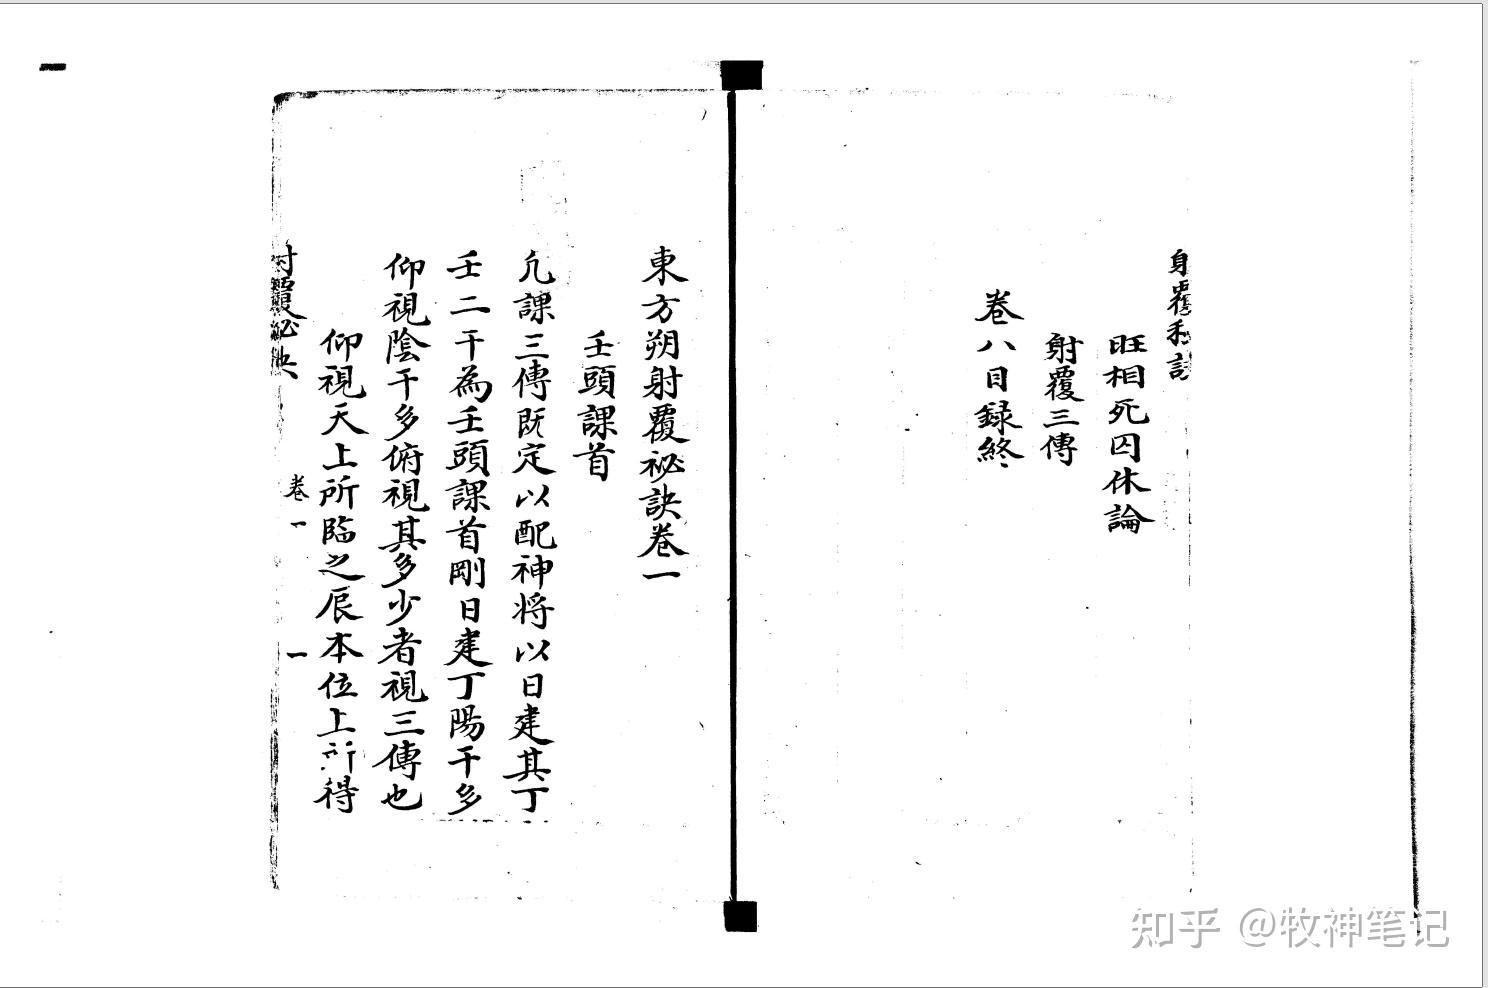 旺相死囚休論
射覆三傳
卷八目録終
東方朔射覆祕訣卷一
壬頭課首
凡課三傳既定以配神將以日建其丁
壬二干為壬頭課首剛日建丁陽干多
仰視陰干多俯視其多少者視三傳也
仰視天上所臨之辰本位上所得
卷一
一
知乎 @牧神笔记